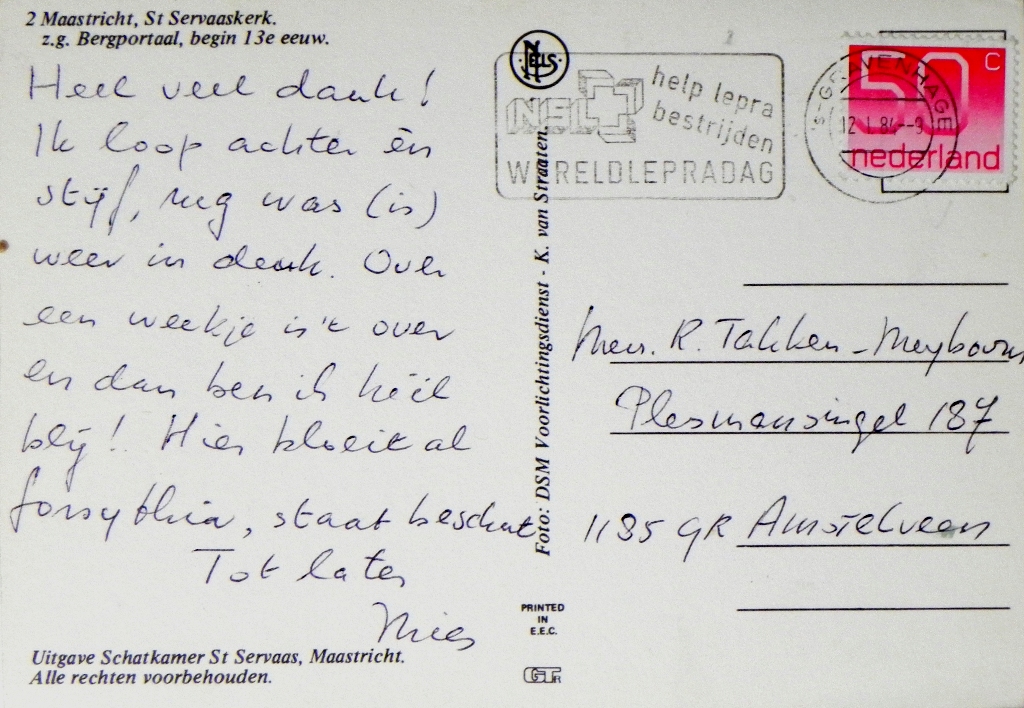 2 Maastricht, St Servaaskerk.
z.g. Bergportaal, begin 13e eeuw.
Heel veel dank!
Ik loop achter èn
stijf, rug was (is)
weer in de
Over
een weekje is't over
en dan ben ik héél
blij! Hier bloeit al
forsythia, staat beschut
Tot later
Mies
Uitgave Schatkamer St Servaas, Maastricht.
Alle rechten voorbehouden.
NELS
Foto: DSM Voorlichtingsdienst - K. van Straaten.
PRINTED
IN
E.E.C.
NSL
help lepra
bestrijden
WERELDLEPRADAG
's-GRAVENHAGE
12 I 84--9
50 C
nederland
Mevr. R. Takken-Meyboom
Plesmansingel 187
1185 GR Amstelveen